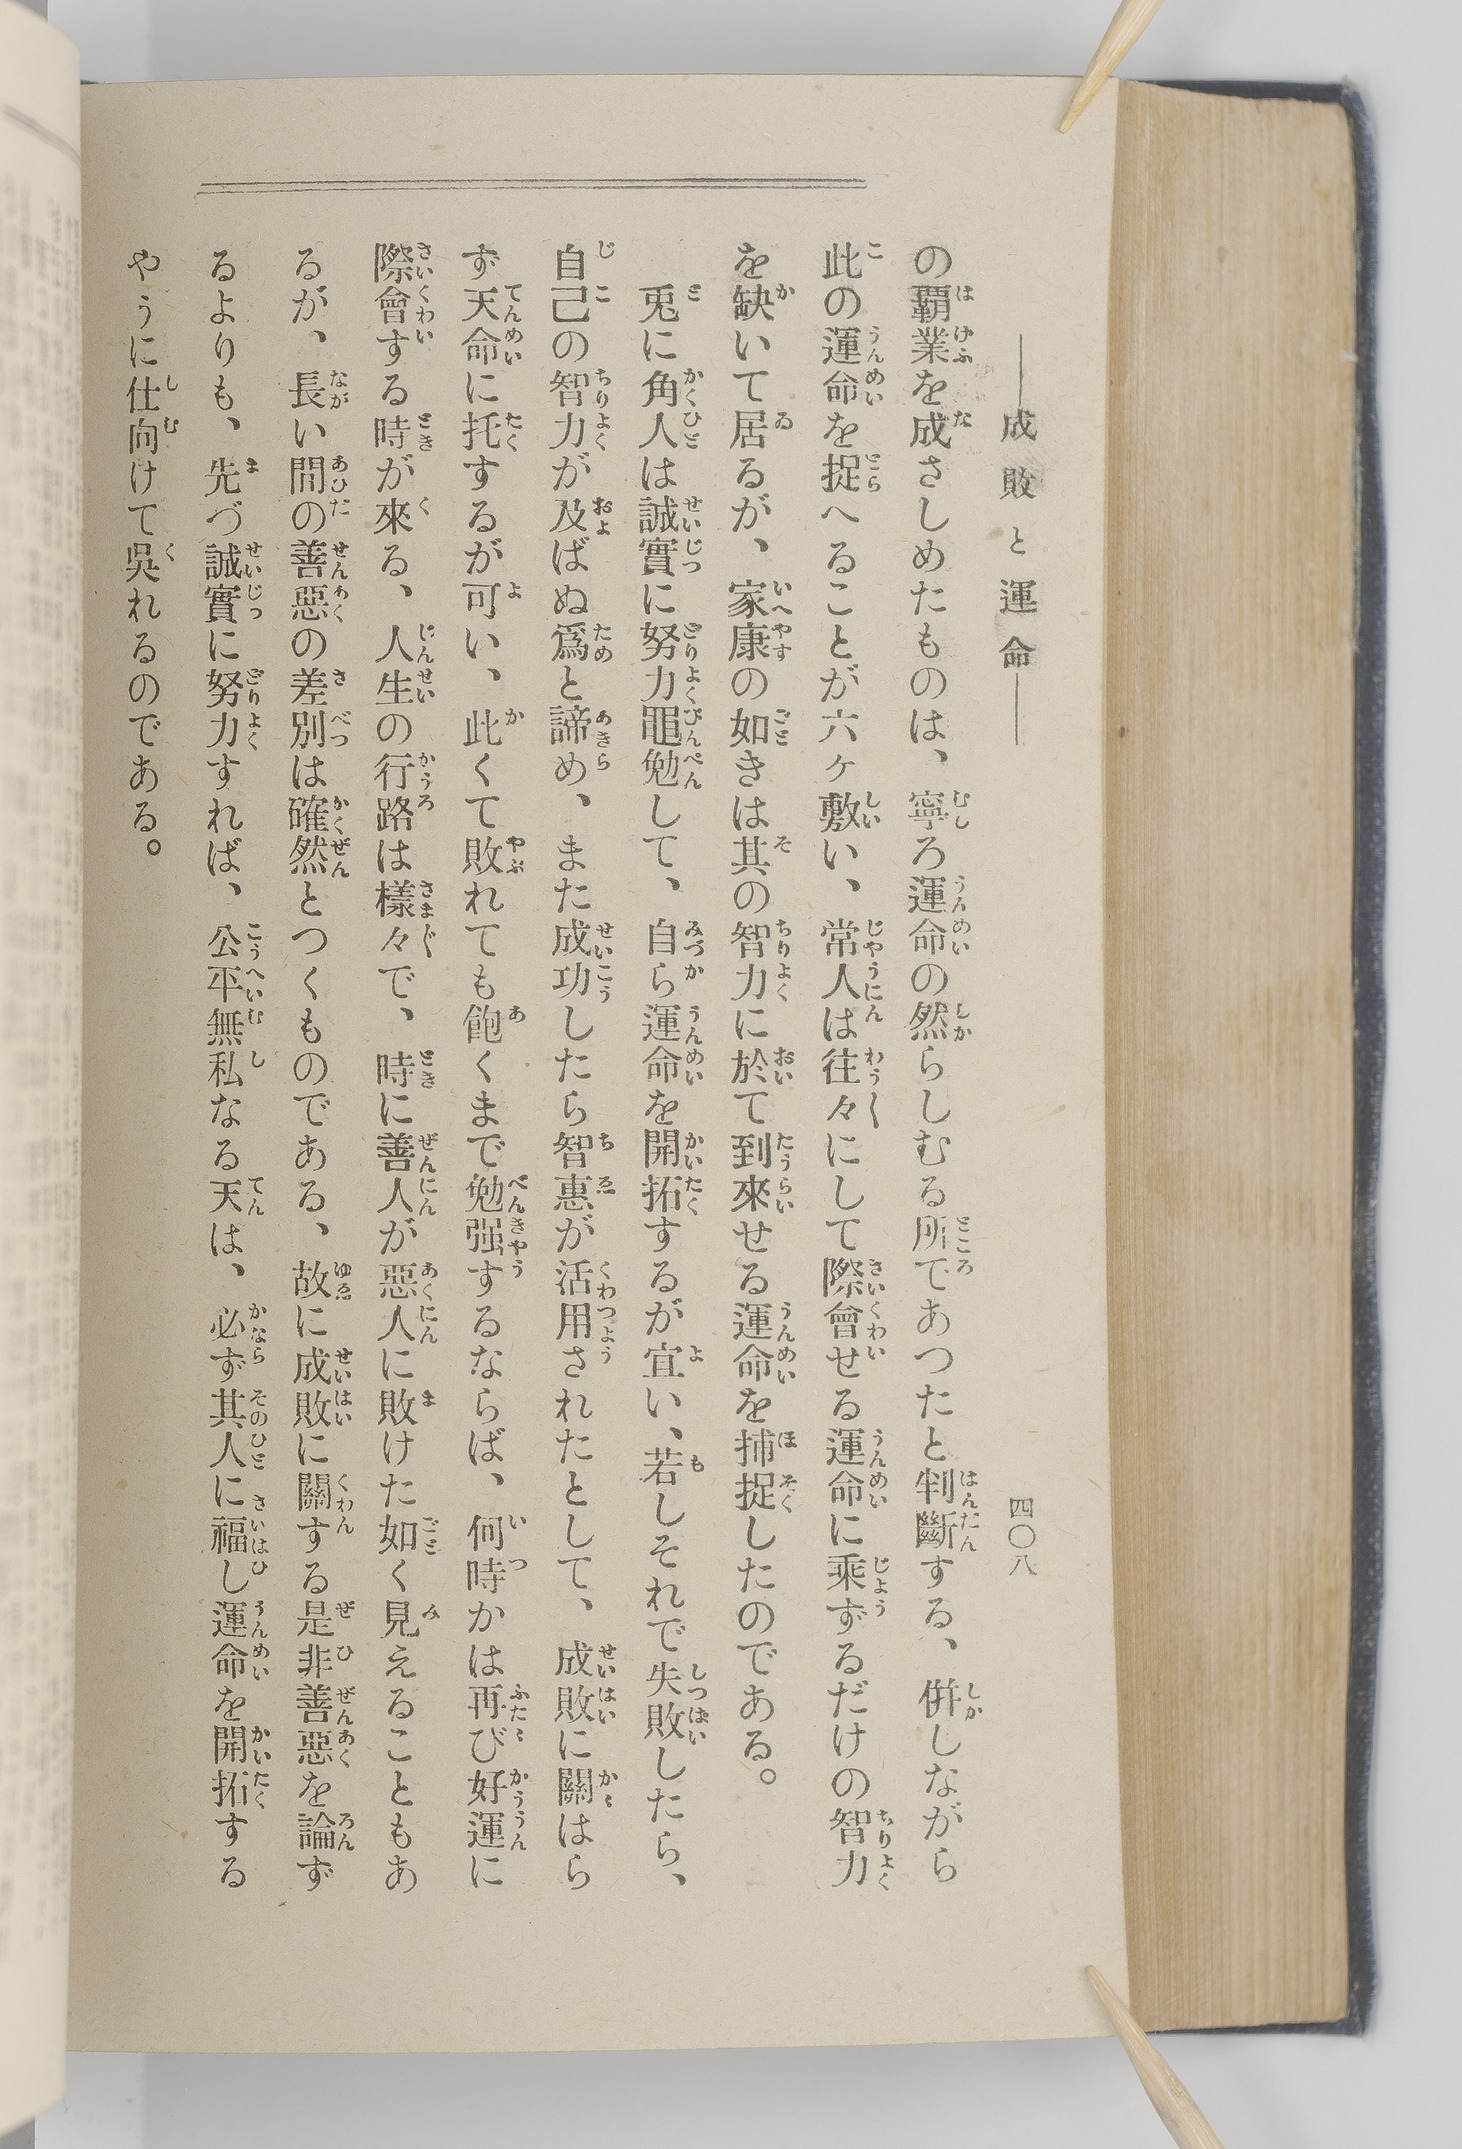 ―成敗と運命―
四〇八
の覇業を成さしめたものは、寧ろ運命の然らしむる所であつたと判斷する、併しながら
此の運命を捉へることが六ヶ敷い、常人は往々にして際會せる運命に乘ずるだけの智力
を缺いて居るが、家康の如きは其の智力に於て到來せる運命を捕捉したのである。
兎に角人は誠實に努力黽勉して、自ら運命を開拓するが宜い、若しそれで失敗したら、
自己の智力が及ばぬ爲と諦め、また成功したら智惠が活用されたとして、成敗に關はら
ず天命に托するが可い、此くて敗れても飽くまで勉强するならば、何時かは再び好運に
際會する時が來る、人生の行路は樣々で、時に善人が惡人に敗けた如く見えることもあ
るが、長い間の善惡の差別は確然とつくものである、故に成敗に關する是非善惡を論ず
るよりも、先づ誠實に努力すれば、公平無私なる天は、必ず其人に福し運命を開拓する
やうに仕向けて吳れるのである。